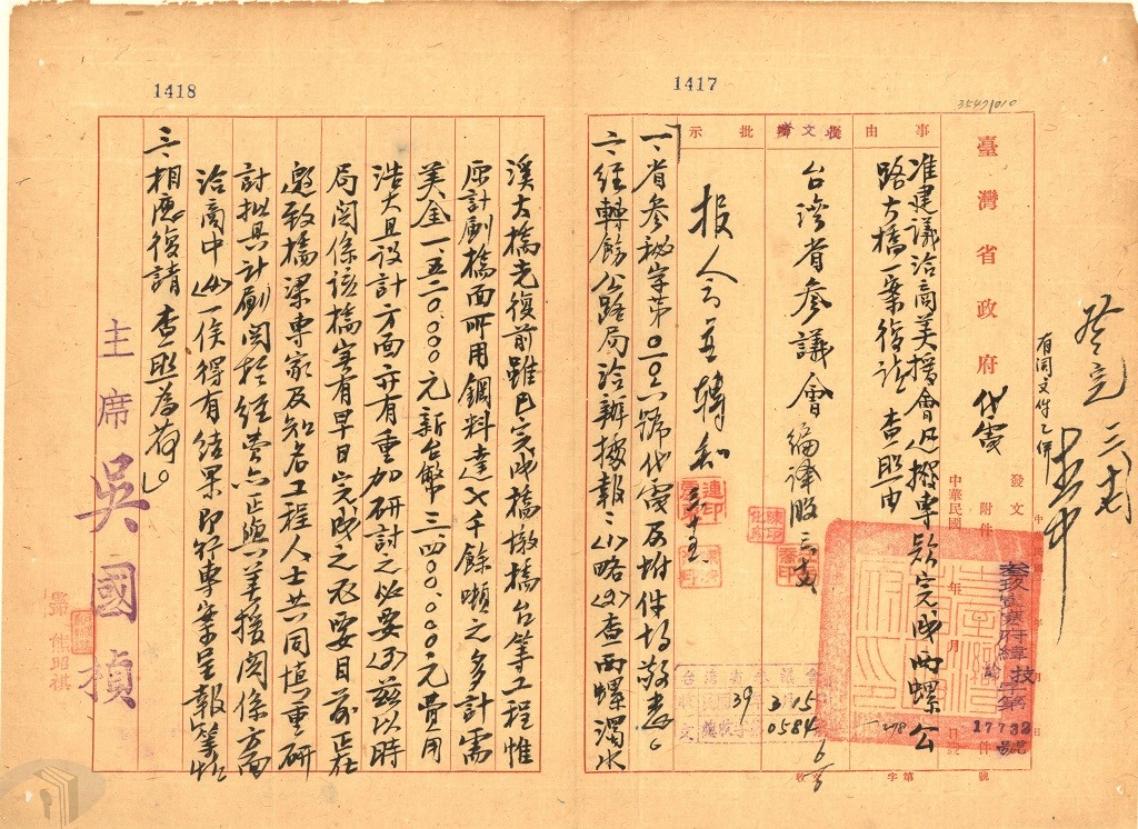 1417
臺灣省政府代電
事由
准建議洽商美援會迅撥專款完成西螺公
路大橋一案復請 查照由
擬文
批示
台灣省參議會
報
一、省參秘字第〇二〇六號代電及附件均敬悉。
二、經轉飭公路局洽辦據報:(1)略(2)查西螺濁水
發文
附件
中華民國 年 月 日
17732
39 3 15
0584
1418
溪大橋光復前雖已完成橋墩橋台等工程惟
原計劃橋面所用鋼料達七千餘噸之多計需
美金一、五二〇、〇〇〇元新台幣三、四〇〇、〇〇〇元費用
浩大且設計方面亦有重加研討之必要(3)茲以時
局關係該橋實有早日完成之必要目前正在
邀致橋梁專家及知名工程人士共同慎重研
討擬具計劃關於經費亦正與美援關係方面
洽商中(4)一俟得有結果即行專案呈報等情
三、相應復請 查照為荷。
主席 吳國楨
熊昭祺